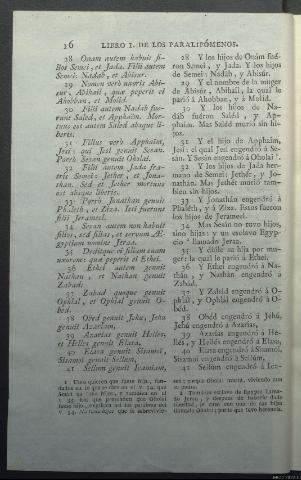 16 LIBRO I. DE LOS PARALIPÓMENOS.
28 Onam autem habuit fi-
lios Semei, et Jada. Filii autem
Semei: Nadab, et Abisur.
29 Nomen verò uxoris Abi-
sur, Abihail, quæ peperit ei
Ahobban, et Molid.
30 Filii autem Nadab fue-
runt Saled, et Apphaim. Mor-
tuus est autem Saled absque li-
beris.
31 Filius verò Apphaim,
Jesi: qui Jesi genuit Sesan.
Porrò Sesan genuit Oholai.
32 Filii autem Jada fra-
tris Semei: Jether, et Jona-
than. Sed et Jether mortuus
est absque liberis.
33 Porrò Jonathan genuit
Phaleth, et Ziza. Isti fuerunt
filii Jerameel.
34 Sesan autem non habuit
filios, sed filias, et servum Æ-
gyptium nomine Jeraa.
35 Deditque ei filiam suam
uxorem: quæ peperit ei Ethei.
36 Ethei autem genuit
Nathan, et Nathan genuit
Zabad.
37 Zabad quoque genuit
Ophlal, et Ophlal genuit O-
bed.
38 Obed genuit Jehu, Jehu
genuit Azariam,
39 Azarias genuit Helles,
et Helles genuit Elasa.
40 Elasa genuit Sisamoi,
Sisamoi genuit Sellum,
41 Sellum genuit Icamiam,
28 Y los hijos de Onám fué-
ron Semei, y Jada. Y los hijos
de Semei: Nadáb, y Abisúr.
29 Y el nombre de la muger
de Abisúr, Abihaíl, la qual le
parió á Ahobban, y á Molid.
30 Y los hijos de Na-
dáb fuéron Saléd, y Ap-
phaim. Mas Saléd murió sin hi-
jos.
31 Y el hijo de Apphaim,
Jesi: el qual Jesi engendró á Se-
sán. Y Sesán engendró á Oholai.
32 Y los hijos de Jada her-
mano de Semei: Jethér, y Jo-
nathán. Mas Jethér murió tam-
bien sin hijos.
33 Y Jonathán engendró á
Phaléth, y á Ziza. Estos fuéron
los hijos de Jerameél.
34 Mas Sesán no tuvo hijos,
sino hijas: y un esclavo Egyp-
cio llamado Jeraa.
35 Y dióle su hija por mu-
ger: la qual le parió á Ethei.
36 Y Ethei engendró á Na-
thán, y Nathán engendró á
Zabad.
37 Y Zabád engendró á O-
phlál, y Ophlál engendró á
Obéd.
38 Obéd engendró á Jehú,
Jehú engendró á Azarías,
39 Azarías engendró á He-
llés, y Hellés engendró á Elasa,
40 Elasa engendró á Sisamoi,
Sisamoi engendró á Selúm,